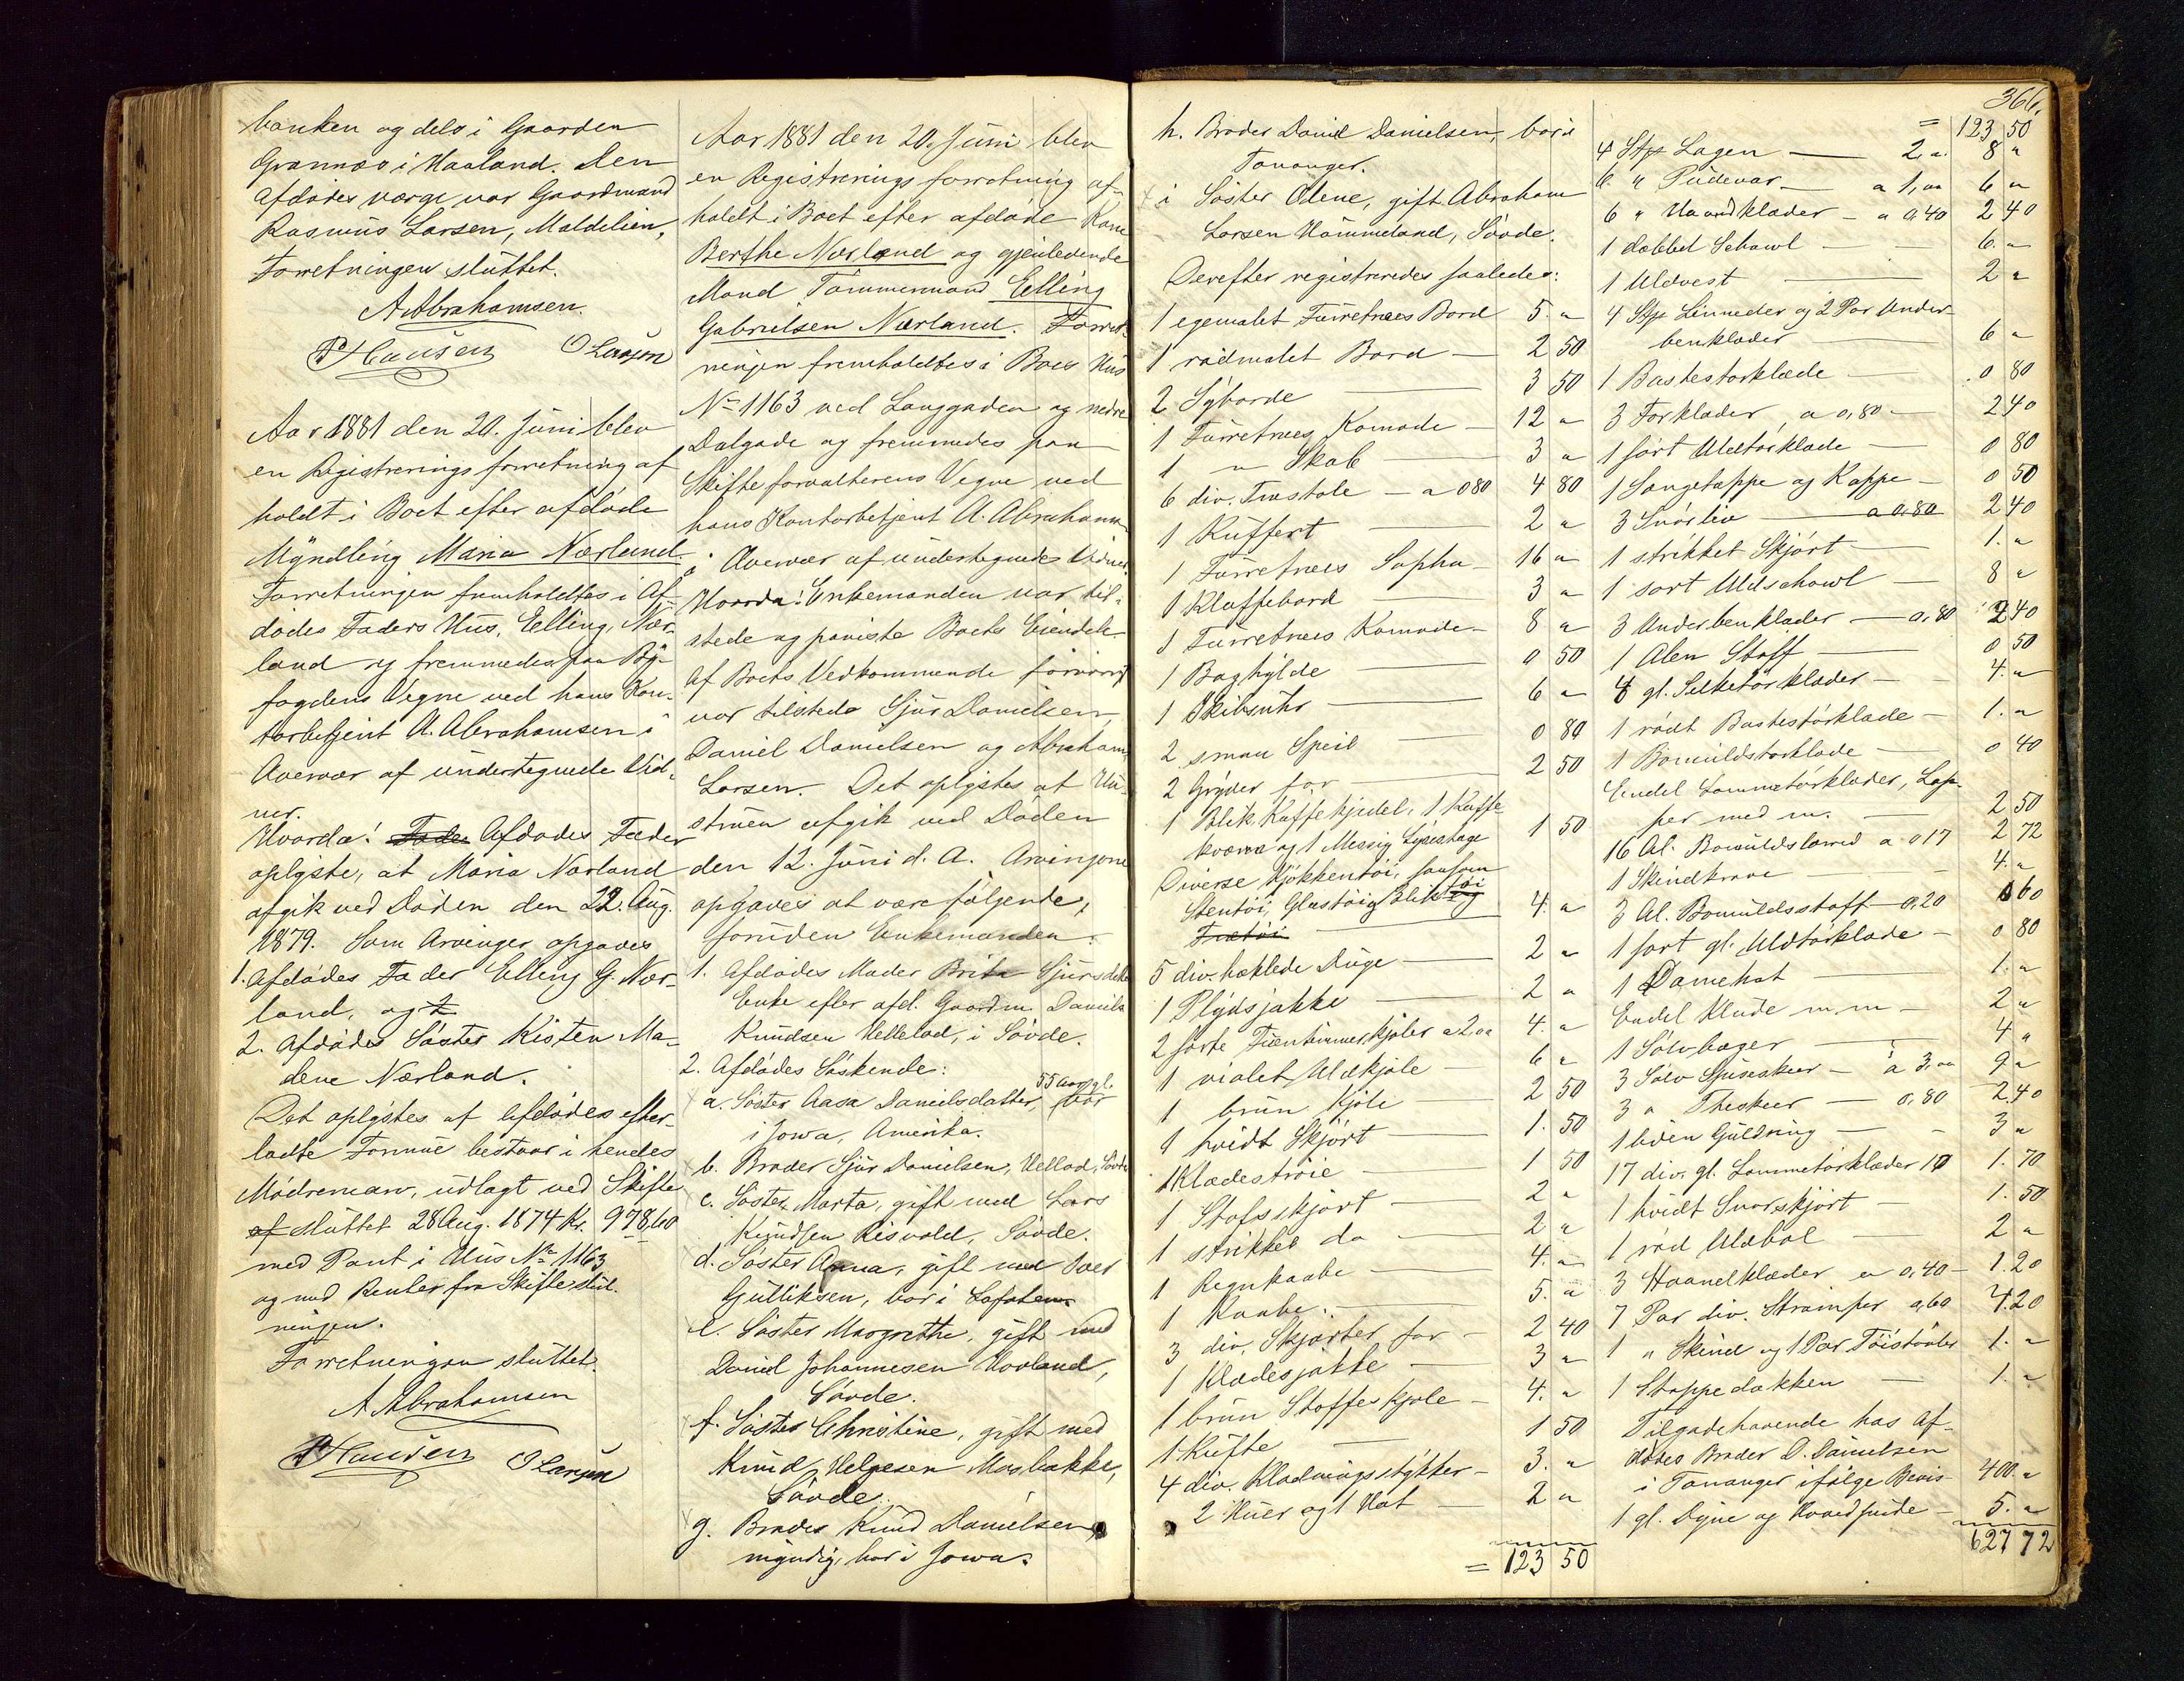 banken og dels i Gaarden
Grannæs i Haaland. Den
afdødes værge var Gaardmand
Rasmus Larsen, Maldelien,
Forretningen sluttet.
A Abrahamsen.
P Hansen O Larsen
Aar 1881 den 20. Juni blev
en Registreringsforretning af
holdt i Boet efter afdøde
Myndling Maria Nærland.
Forretningen fremholdtes i Af-
dødes Faders Hus, Elling, Nær-
land og fremmedes paa By-
fogdens Vegne ved hans Kon-
torbetjent A. Abrahamsen i
Overvær af undertegnede Vid-
ner.
Hvorda! Fader Afdødes Fader
oplyste, at Maria Nærland
afgik ved Døden den 22. Aug.
1879. Som Arvinger opgaves
1. Afdødes Fader Elling G. Nær-
land, og 2
2. Afdødes Søster Kisten Ma-
dene Nærland.
Det oplystes at Afdødes efter-
ladte Formue bestaar i hendes
Mødrenearv, udlagt ved Skifte
af sluttet 28 Aug. 1874 Kr. 978,60
med Pant i Hus No 1163
og med Renter fra Skifteslut-
ningen.
Forretningen sluttet.
A Abrahamsen
P Hansen O Larsen
Aar 1881 den 20. Juni blev
en Registreringsforretning af-
holdt i Boet efter afdøde Kone
Berthe Nærland og gjenlevende
Mand Tømmermand Elling
Gabrielsen Nærland. Forret-
ningen fremholdtes i Boets Hus
No 1163 ved Langgaden og nedre
Dalgade og fremmedes paa
Skifteforvalterens Vegne ved
hans Kontorbetjent A. Abrahams
i Overvær af undertegnede Vidner.
Hvorda! Enkemanden var til-
stede og paaviste Boets Eiendele
Af Boets Vedkommende forøvrigt
var tilstede Sjur Danielsen,
Daniel Danielsen og Abraham
Larsen. Det oplystes at Hu-
struen afgik ved Døden
den 12. Juni d. A. Arvingerne
opgaves at være følgende,
foruden Enkemanden:
1. Afdødes Moder Brita Sjursdatte
Enke efter afd. Gaardm. Daniels
Knudsen Hellelad, i Søvde.
2. Afdødes Søskende:
a. Søster Aasa Danielsdatter, 55 Aar gl. bor
i Jowa, Amerika.
b. Broder Sjur Danielsen, Hellad, Søvde
c. Søster Marta, gift med Lars
Knudsen Risvold, Søvde.
d. Søster Anna, gift med Iver
Gulliksen, bor i Lofoten
e. Søster Margrethe, gift med
Daniel Johannesen Hovland,
Søvde.
f. Søster Christine, gift med
Knud Helgesen Mosbakke,
Søvde.
g. Broder Knud Danielsen,
myndig, bor i Jowa.
366.
h. Broder Daniel Danielsen, bor i
Tananger.
i Søster Olene, gift Abraham
Larsen Hammeland, Søvde.
Derefter registreredes saaledes:
1 egemalet Furretræes Bord 5. "
1 rødmalet Bord — 2 50
2 Syborde — 3 50
1 Furretræes Komode — 12 "
1 " Skab — 3 "
6 div. Træstole — a 0 80 4 80
1 Kuffert — 2 "
1 Furretræes Sopha — 16 "
1 Klaffebord — 3 "
1 Furretræes Komode — 8 "
1 Baghylde — 0 50
1 Skibsuhr — 6 "
2 smaa Speil — 0 80
2 Gryder for — 2 50
1 Blik Kaffekjedel, 1 Kaffe-
kværn og 1 Messing Lysestage 1 50
Diverse Kjøkkentøi, saasom
Stentøi, Glastøi og Bliktøi og
Trætøi — 4. "
5 div. hæklede Duge — 2 "
1 Plydsjakke — 2 "
2 sorte Fruentimmerkjoler a 2,00 4. "
1 violet Uldkjole — 6 "
1 brun Kjole — 2 50
1 hvidt Skjørt — 1. 50
1 Klædestrøie — 1 50
1 Stofsskjørt — 2 "
1 strikket do — 2 "
1 Regnkaabe — 4. "
1 Kaabe. — 5. "
3 div. Skjørter for — 2 40
1 Klædesjakke — 3 "
1 brun Stoffeskjole — 4. "
1 Kufte — 1 50
4 div. Klædningsstykker — 3. "
2 Huer og 1 Hat — 2 "
= 123 50
= 123 50
4 Stp Lagen — 2 ". 8 "
6 " Pudevar — a 1,00 6 "
6 " Haandklæder — a 0,40 2 40
1 dobbel Schawl — 6. "
1 Uldvest — 2 "
4 Stp Linneder og 2 Par Under-
benklæder — 6 "
1 Bastestørklæde — 0 80
3 Forklæder a 0,80 — 2 40
1 sort Uldtørklæde — 0 80
1 Sengetæppe og Kappe — 0 50
3 Snørliv — a 0,80 2 40
1 strikket Skjørt — 1. "
1 sort Uldschawl — 8 "
3 Underbenklæder — 0,80 2 40
1 Alen Stoff — 0 50
4 gl. Silketørklæder — 4. "
1 rødt Bastestørklæde — 1. "
1 Bomuldstørklæde — 0 40
Endel Lommetørklæder, Lap-
per med m. — 2 50
16 Al. Bomuldslærred a 0 17 2 72
1 Skindkrave — 4. "
3 Al. Bomuldsstoff — 0,20 60
1 sort gl. Uldtørklæde — 0 80
1 Damehat — 1. "
Endel Klude m m — 2 "
1 Sølvbæger — 4 "
3 Sølv Spiseskeer — à 3,00 9 "
3 " Theskeer — 0,80 2.40
1 liden Guldring — 3 "
17 div. gl. Lommetørklæder 10 1. 70
1 hvidt Snorskjørt — 1. 50
1 rød Uldbol — 2 "
3 Haandklæder a 0,40 — 1.20
7 Par div. Strømper 0,60 4.20
1 " Skind og 1 Par Tøistøvler 1. "
1 Stoppedækken — 1. "
Tilgodehavende hos Af-
dødes Broder D. Danielsen
i Tananger ifølge Bevis — 400. "
1 gl. Dyne og Hovedpude — 5. "
627 72